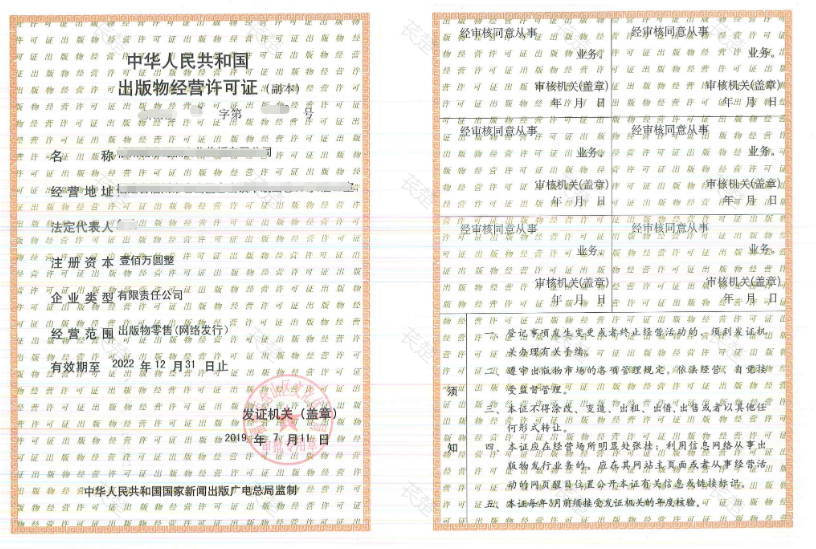 中华人民共和国
出版物经营许可证(副本)
字第 号
名 称
经营地址
法定代表人
注册资本 壹佰万圆整
企业类型 有限责任公司
经营范围 出版物零售(网络发行)
有效期至 2022 年 12 月 31 日止
发证机关(盖章)
2019 年 7 月 11 日
中华人民共和国国家新闻出版广电总局监制
经审核同意从事
业务。
审核机关(盖章)
年 月 日
经审核同意从事
业务。
审核机关(盖章)
年 月 日
经审核同意从事
业务。
审核机关(盖章)
年 月 日
经审核同意从事
业务。
审核机关(盖章)
年 月 日
经审核同意从事
业务。
审核机关(盖章)
年 月 日
经审核同意从事
业务。
审核机关(盖章)
年 月 日
须知
一、登记事项发生变更或者终止经营活动的,须到发证机
关办理有关手续。
二、遵守出版物市场的各项管理规定,依法经营,自觉接
受监督管理。
三、本证不得涂改、变造、出租、出借、出售或者以其他任
何形式转让。
四、本证应在经营场所明显处张挂;利用信息网络从事出
版物发行业务的,应在其网站主页面或者从事经营活
动的网页醒目位置公开本证有关信息或链接标识。
五、本证每年3月前须接受发证机关的年度核验。